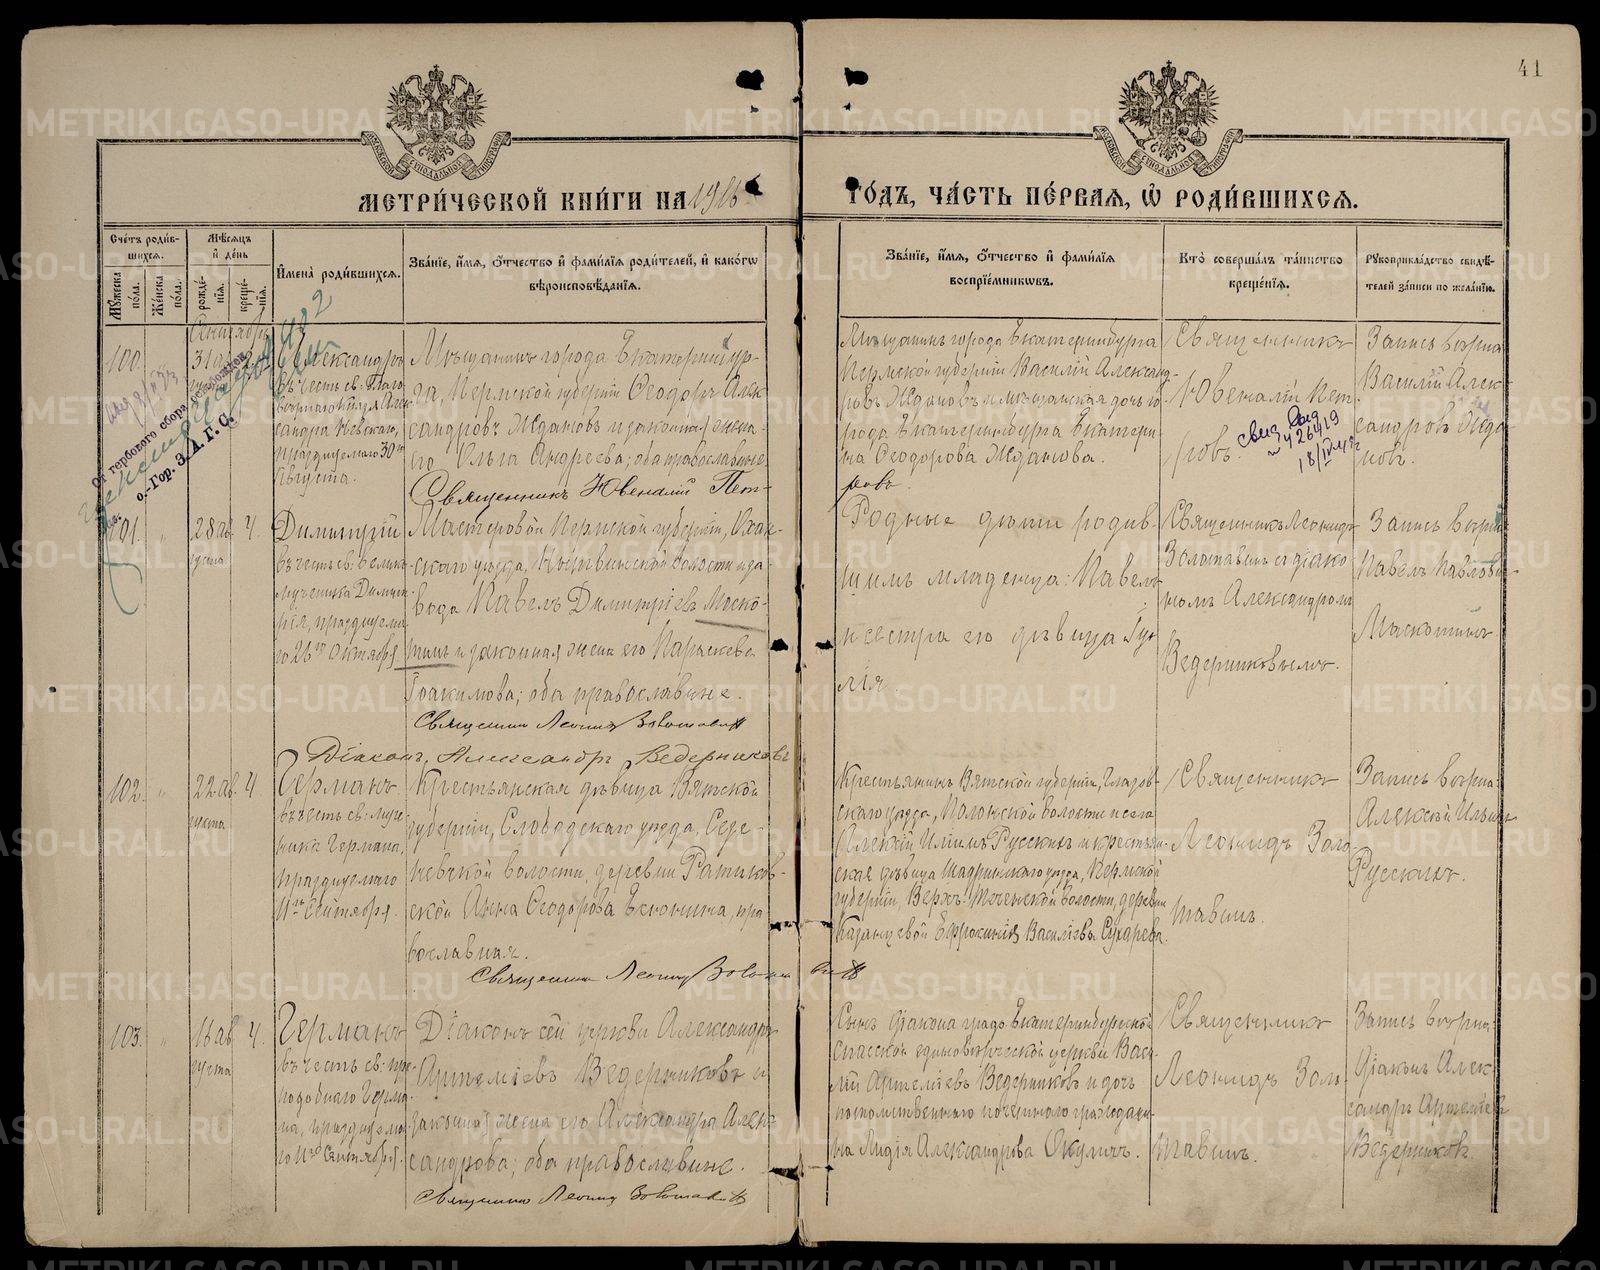 41
МЕТРИ́ЧЕСКОЙ КНИ́ГИ НА 1916
ГО́ДЪ, ЧА́СТЬ ПЕ́РВАЯ, Ѽ РОДИ́ВШИХСЯ.
Сче́тъ роди́в-
шихся.
Мꙋ́жеска по́ла.
Же́нска по́ла.
Мѣ́сяцъ
и҆ де́нь
рожде́-
нїя.
креще́-
нїя.
И҆мена̀ роди́вшихся.
Зва́нїе, и҆́мя, ѻ҆́тчество и҆ фами́лїя роди́телей, и҆ како́гѡ
вѣроисповѣ́данїя.
Зва́нїе, и҆́мя, ѻ҆́тчество и҆ фами́лїя
воспрїе́мникѡвъ.
Кто̀ соверша́лъ та́инство
креще́нїя.
Рꙋкоприкла́дство свидѣ́-
телей за́писи по жела́нїю.
Сентябрь
100.
31 ав
густа
Александръ
въ честь св: Благо-
вѣрнаго Князя Алек
сандра Невскаго,
празднуемаго 30го
Августа.
Мѣщанинъ города Екатеринбур-
га, Пермской губернiи Ѳеодоръ Алек
сандровъ Ждановъ и законная жена
его Ольга Андреева; оба православные.
Священникъ Ювеналiй Пет-
ровъ.
Мѣщанинъ города Екатеринбурга
Пермской губернiи Василiй Александ-
ровъ Ждановъ и мѣщанская дочь го
рода Екатеринбурга Екатери-
на Ѳеодорова Жданова.
Священникъ
Ювеналiй Пет-
ровъ.
Запись вѣрна
Василiй Алек-
сандровъ Жда-
новъ.
От гербового сбора освобожден
о.-Гор. З.А.Г.С.
101.
"
28 ав
густа
4.
Димитрiй
въ честь св: велико-
мученика Димит-
рiя, празднуема-
го 26го Октября
Мастеровой Пермской губернiи, Охан-
скаго уѣзда, Нытвинской волости и за-
вода Павелъ Димитрiевъ Маско-
тинъ и законная жена его Параскева
Iоакимова; оба православные.
Священникъ Леонидъ Золотавинъ
Дiаконъ Александръ Ведерниковъ
Родные дѣти родив-
шимъ младенца: Павелъ
и сестра его дѣвица Iу-
лiя
Священникъ Леонидъ
Золотавинъ съ дiако
номъ Александромъ
Ведерниковымъ.
Запись вѣрна
Павелъ Павловъ
Маскотинъ.
102.
"
22 ав
густа
4
Германъ
въ честь св: муче-
ника Германа,
празднуемаго
11го Сентября.
Крестьянская дѣвица Вятской
губернiи, Слободскаго уѣзда, Сезе-
невской волости, деревни Ратиков-
ской Анна Ѳеодорова Еконина, пра
вославная.
Священникъ Леонидъ Золотавинъ
Крестьянинъ Вятской губернiи, Глазов-
скаго уѣзда, Поломской волости и села
Алексiй Ильинъ Русскихъ и крестьян
ская дѣвица Шадринскаго уѣзда, Пермской
губернiи, Верхъ-Теченской волости, деревни
Казанцевой Ефросинiя Васильева Сухарева.
Священникъ
Леонидъ Золо-
тавинъ.
Запись вѣрна:
Алексiй Ильинъ
Русскихъ.
103.
"
16 ав
густа
4.
Германъ
въ честь св: пре-
подобнаго Герма-
на, празднуема-
го 11го Сентября.
Дiаконъ сей церкви Александръ
Артемiевъ Ведерниковъ и
законная жена его Александра Алек-
сандрова; оба православные.
Священникъ Леонидъ Золотавинъ
Сынъ дiакона градо-Екатеринбургской
Спасской единовѣрческой церкви Васи-
лiй Артемiевъ Ведерниковъ и дочь
потомственнаго почетнаго граждани-
на Лидiя Александрова Окуличъ.
Священникъ
Леонидъ Золо-
тавинъ.
Запись вѣрна:
Дiаконъ Алек-
сандръ Артемiев
Ведерниковъ.